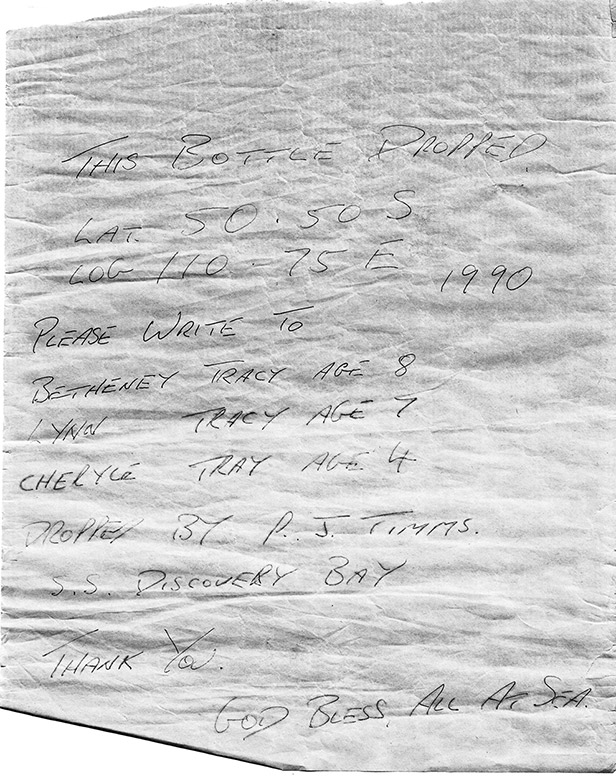 THIS BOTTLE DROPPED
LAT. 50.50 S
LOG 110-75 E 1990
PLEASE WRITE TO
BETHENEY TRACY AGE 8
LYNN TRACY AGE 7
CHERYLE TRAY AGE 4
DROPPED BY P. J. TIMMS.
S.S. DISCOVERY BAY
THANK YOU.
GOD BLESS, ALL AT SEA.